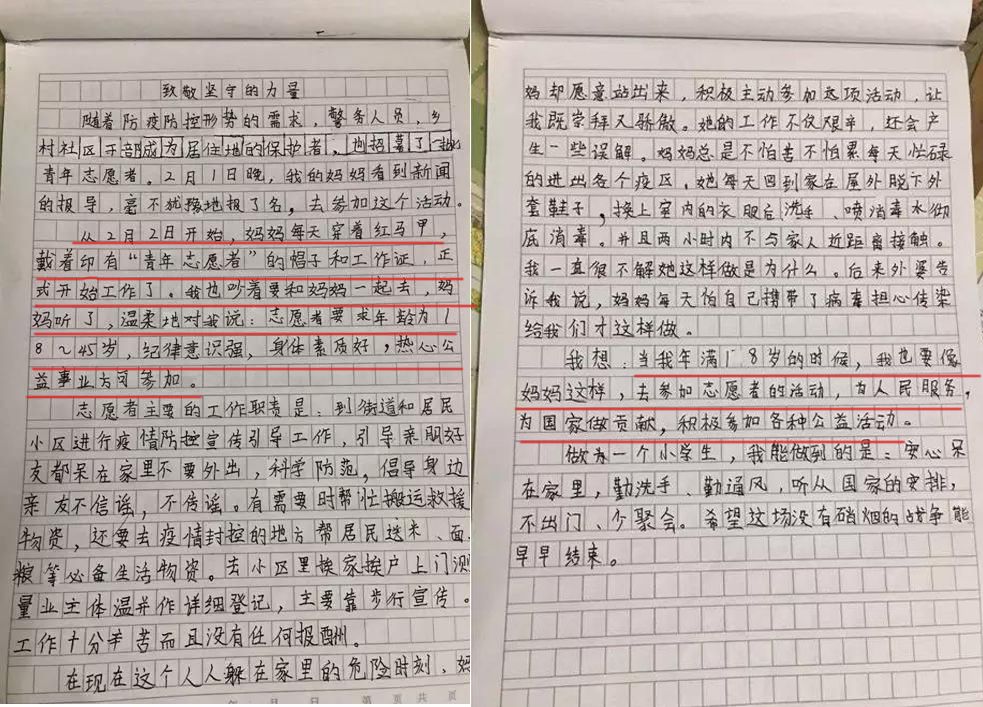 致敬坚守的力量
随着防疫防控形势的需求，警务人员，乡
村社区干部成为居住地的保护者，也招募了一批
青年志愿者。2月1日晚，我的妈妈看到新闻
的报导，毫不犹豫地报了名，去参加这个活动。
从2月2日开始，妈妈每天穿着红马甲，
戴着印有“青年志愿者”的帽子和工作证，正
式开始工作了。我也吵着要和妈妈一起去，妈
妈听了，温柔地对我说：志愿者要求年龄为1
8～45岁，纪律意识强，身体素质好，热心公
益事业方可参加。
志愿者主要的工作职责是：到街道和居民
小区进行疫情防控宣传引导工作，引导亲朋好
友都呆在家里不要外出，科学防范，倡导身边
亲友不信谣，不传谣。有需要时帮忙搬运救援
物资，还要去疫情封控的地方帮居民送米、面、
粮等必备生活物资。去小区里挨家挨户上门测
量业主体温并作详细登记，主要靠步行宣传。
工作十分辛苦而且没有任何报酬。
在现在这个人人躲在家里的危险时刻，妈
年 月 日 第 页 共 页
妈却愿意站出来，积极主动参加这项活动，让
我既崇拜又骄傲。她的工作不仅艰辛，还会产
生一些误解。妈妈总是不怕苦不怕累每天忙碌
的进出各个疫区。她每天回到家在屋外脱下外
套鞋子，换上室内的衣服后洗手、喷消毒水彻
底消毒。并且两小时内不与家人近距离接触。
我一直很不解她这样做是为什么。后来外婆告
诉我说，妈妈每天怕自己携带了病毒担心传染
给我们才这样做。
我想：当我年满18岁的时候，我也要像
妈妈这样，去参加志愿者的活动，为人民服务，
为国家做贡献，积极参加各种公益活动。
做为一个小学生，我能做到的是：安心呆
在家里，勤洗手、勤通风，听从国家的安排，
不出门、少聚会。希望这场没有硝烟的战争能
早早结束。